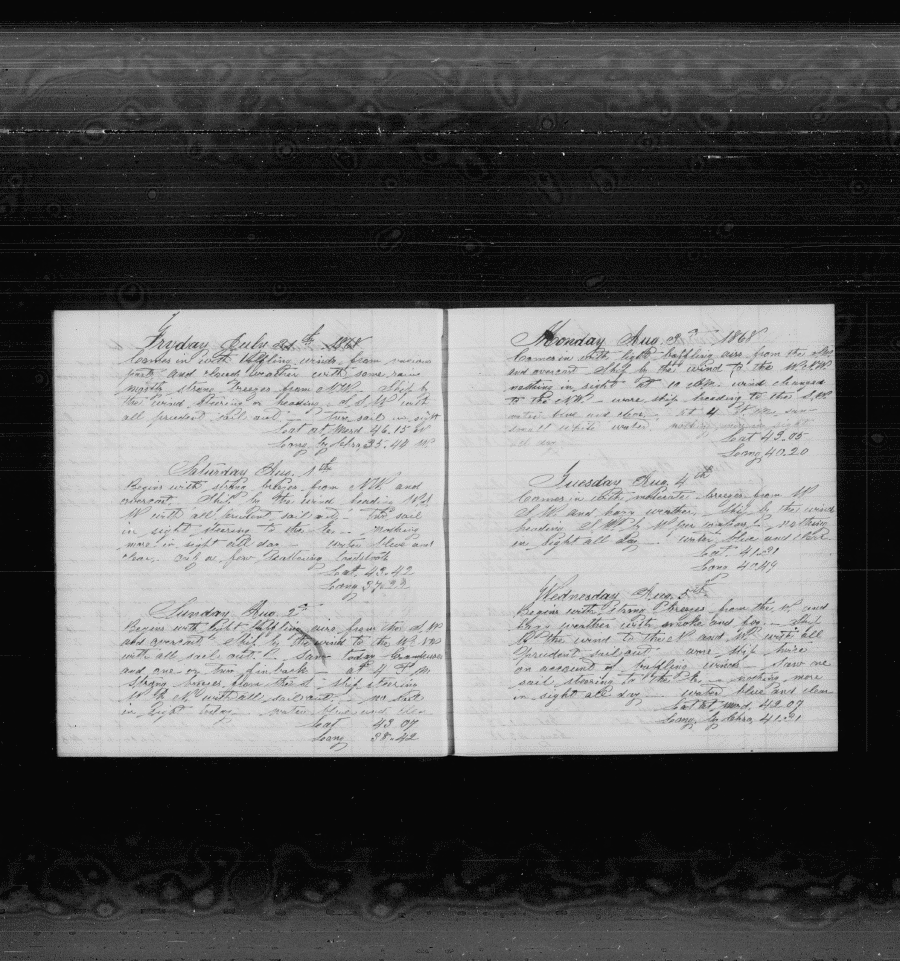 Fryday July 31th 1868
Comes in with baffling winds from various
parts and cloud weather with some rain
mostly strong breezes from NW. Ship by
the wind steering or heading S.S.W with
all prudent sail out. two sail in sight
Lat at Merd 46.15 N
Long by Chro, 35.44 W.
Saturday Aug. 1th
Begins with strong breezes from NW and
overcast. Ship by the wind heading
W with all prudent sail out two sail
in sight steering to the nothing
more in sight all day water blue and
clear. only a few scattering
Lat, 43.42
Long, 37.
Sunday Aug. 2
Begins with light baffling airs from the S.W
and overcast Ship by the wind to the W.
with all sail out Saw today
and one or two finback at 4 P.M.
strong breezes from the S ship steering
W by N with all sail out no sail
in sight today water blue and
Lat 43.07
Long 38.42
Monday Aug. 3 1868
Comes in with light baffling airs from the
and overcast Ship by the wind to the
nothing in sight at 10 wind changed
to the NW wore ship heading to the S.W
water blue and clear. at 4 P.M. saw
small white water. nothing more in sight
day
Lat 43.05
Long 40.20
Tuesday Aug. 4th
Comes in with moderate breezes from W
S.W and hazy weather. Ship by the wind
heading by nothing
in sight all day water blue and clear
Lat 41.31
Long 40.49
Wednesday Aug. 5th
Begins with strong breezes from the W and
hazy weather with smoke and fog. Ship
by the wind to the N and W with all
prudent sail out wore ship twice
on account of baffling winds saw one
sail steering to the nothing more
in sight all day water blue and clear
Lat at merd. 42.07
Long, by Chro, 41.31